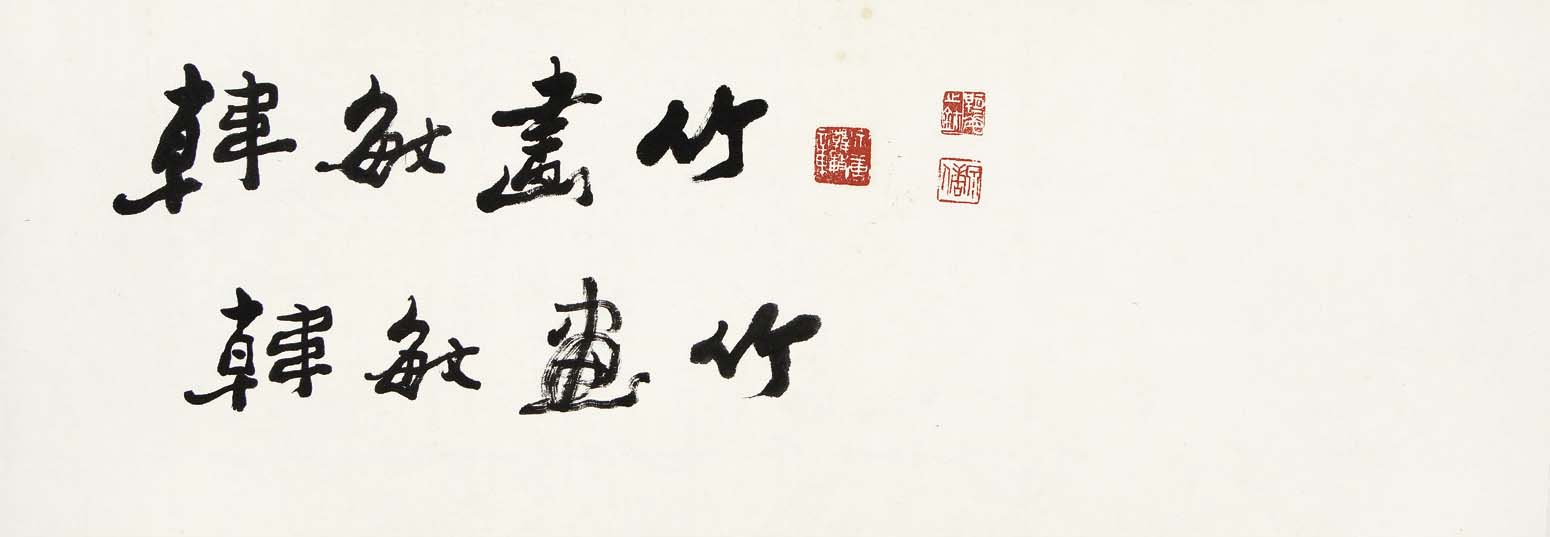 韓敏畫竹
韓敏畫竹